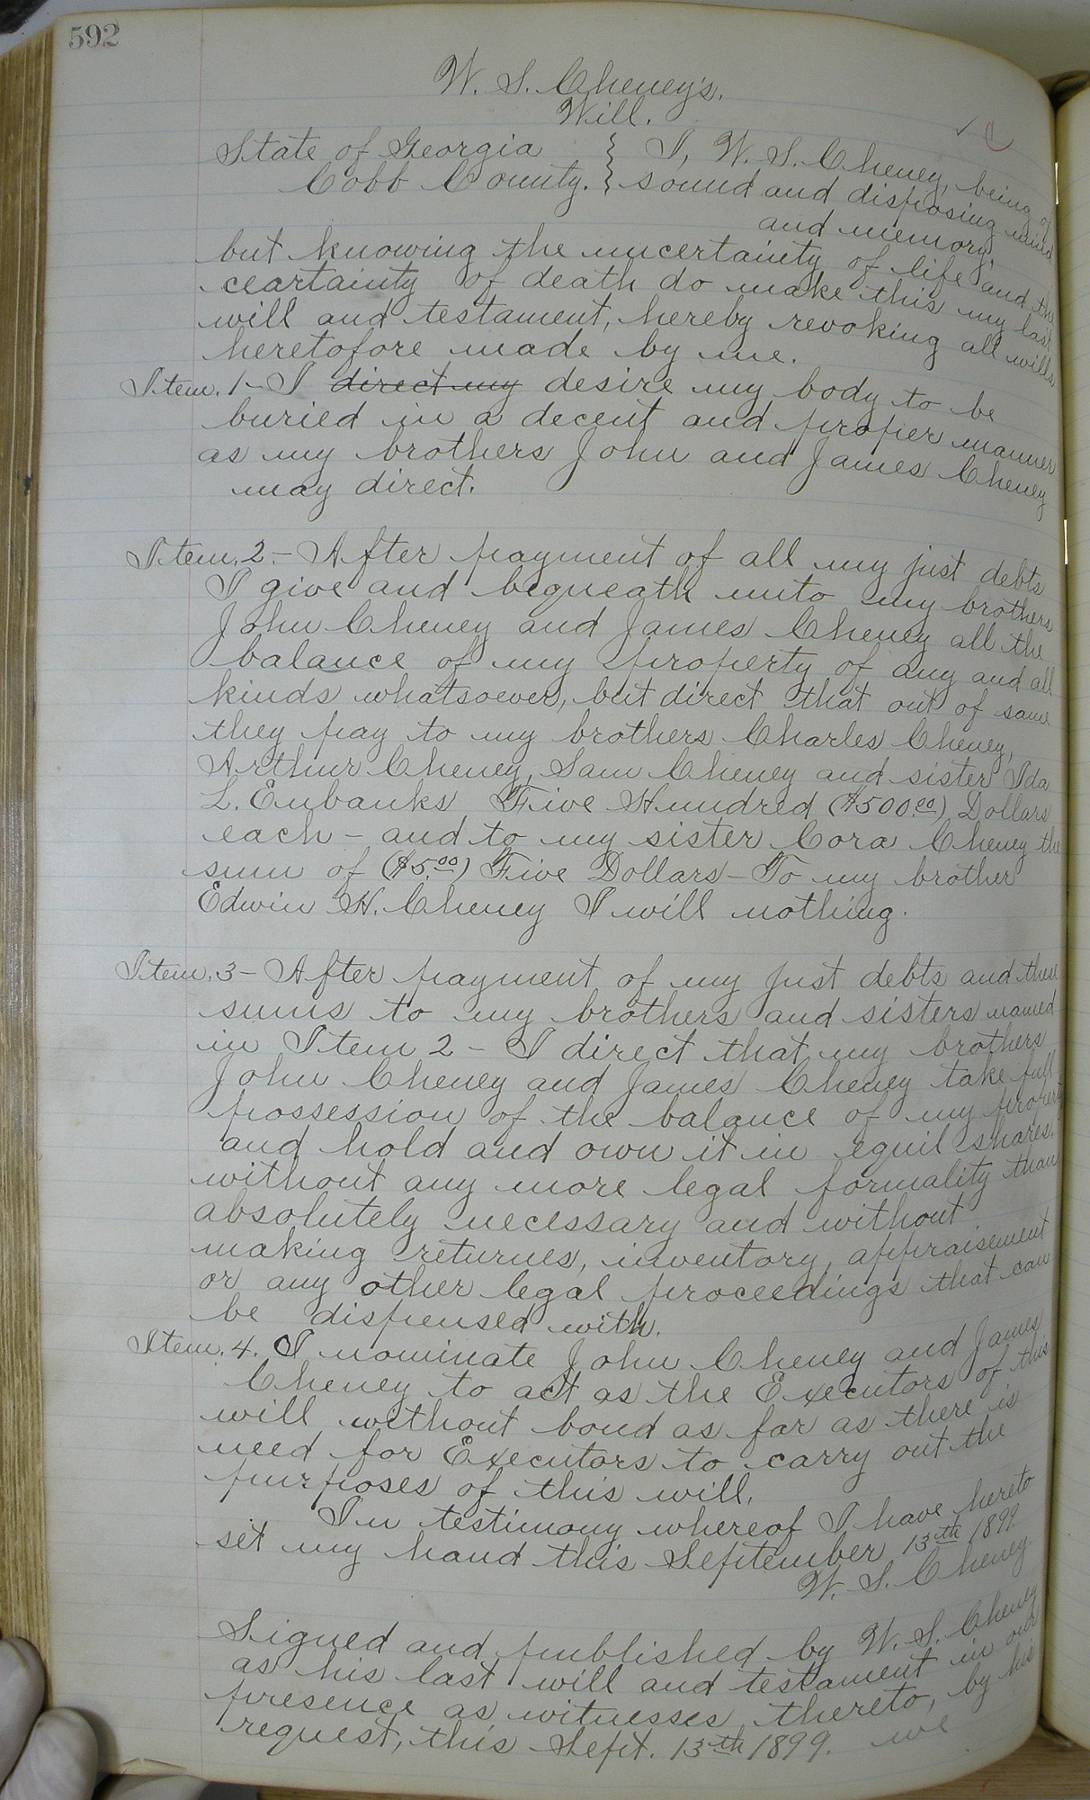 592
W. S. Cheney's.
Will.
State of Georgia } I, W. S. Cheney, being of
Cobb County. } sound and disposing mind
and memory,
but knowing the uncertainty of life and the
ceartainty of death do make this my last
will and testament, hereby revoking all wills
heretofore made by me.
Item. 1- I direct my desire my body to be
buried in a decent and proper manner
as my brothers John and James Cheney
may direct.
Item. 2.- After payment of all my just debts
I give and bequeath unto my brothers
John Cheney and James Cheney all the
balance of my property of any and all
kinds whatsoever, but direct that out of same
they pay to my brothers Charles Cheney,
Arthur Cheney, Sam Cheney and sister Ida
L. Eubanks Five Hundred ($500.00) Dollars
each - and to my sister Cora Cheney the
sum of ($5.00) Five Dollars - To my brother
Edwin H. Cheney I will nothing.
Item. 3 - After payment of my just debts and these
sums to my brothers and sisters named
in Item 2 - I direct that my brothers
John Cheney and James Cheney take full
possession of the balance of my property
and hold and own it in equil shares.
without any more legal formality than
absolutely necessary and without
making returnes, inventory, appraisement
or any other legal proceedings that can
be dispensed with.
Item. 4. I nominate John Cheney and James
Cheney to act as the Executors of this
will without bond as far as there is
need for Executors to carry out the
purposes of this will.
In testimony whereof I have hereto
set my hand this September 13th 1899
W. S. Cheney.
Signed and published by W. S. Cheney
as his last will and testament in our
presence as witnesses thereto, by his
request, this Sept. 13th 1899. we